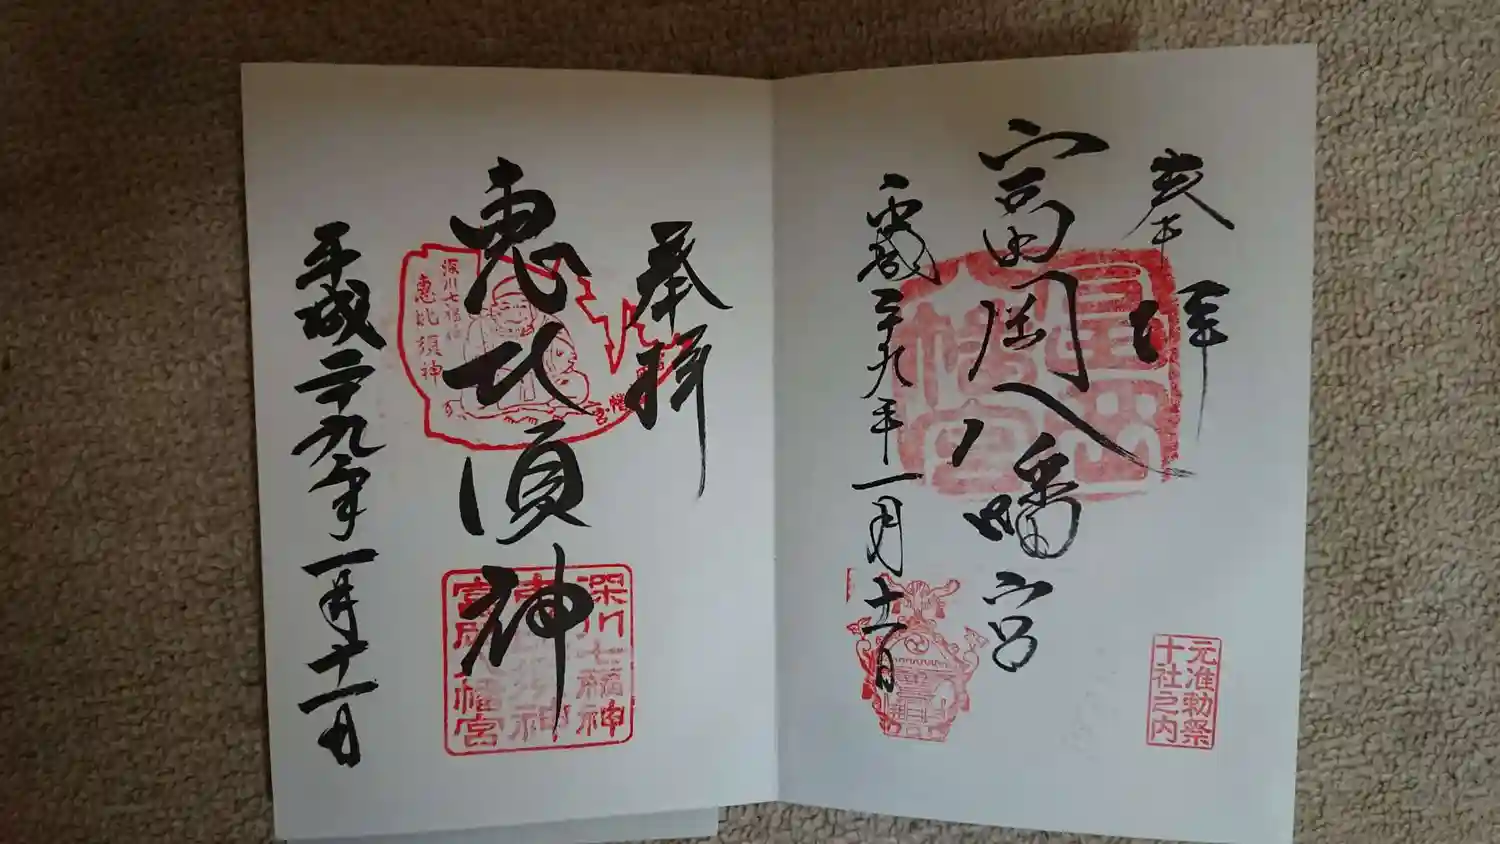 奉拝
富岡八幡宮
平成二十九年一月十一日
元准勅祭
十社之内
奉拝
恵比須神
平成二十九年一月十一日
深川七福神
恵比須神
深川七福神
富岡八幡宮